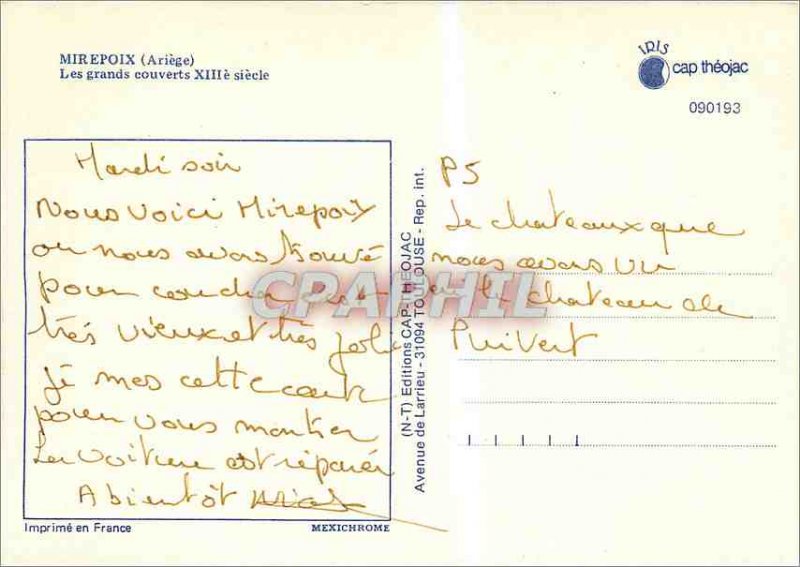 MIREPOIX (Ariège)
Les grands couverts XIIIè siècle
IRIS
cap théojac
090193
Mardi soir
Nous voici Mirepoix
ou nous avons trouvé
pour coucher
très vieux et très joli
je mes cette carte
pour vous montrer
La voiture est réparée
A bientôt
(N-T) Editions CAP-THEOJAC
Avenue de Larrieu - 31094 TOULOUSE - Rep. int.
PS
Le chateaux que
nous avons vu
le chateau de
Puivert
CPAPHIL
Imprimé en France
MEXICHROME